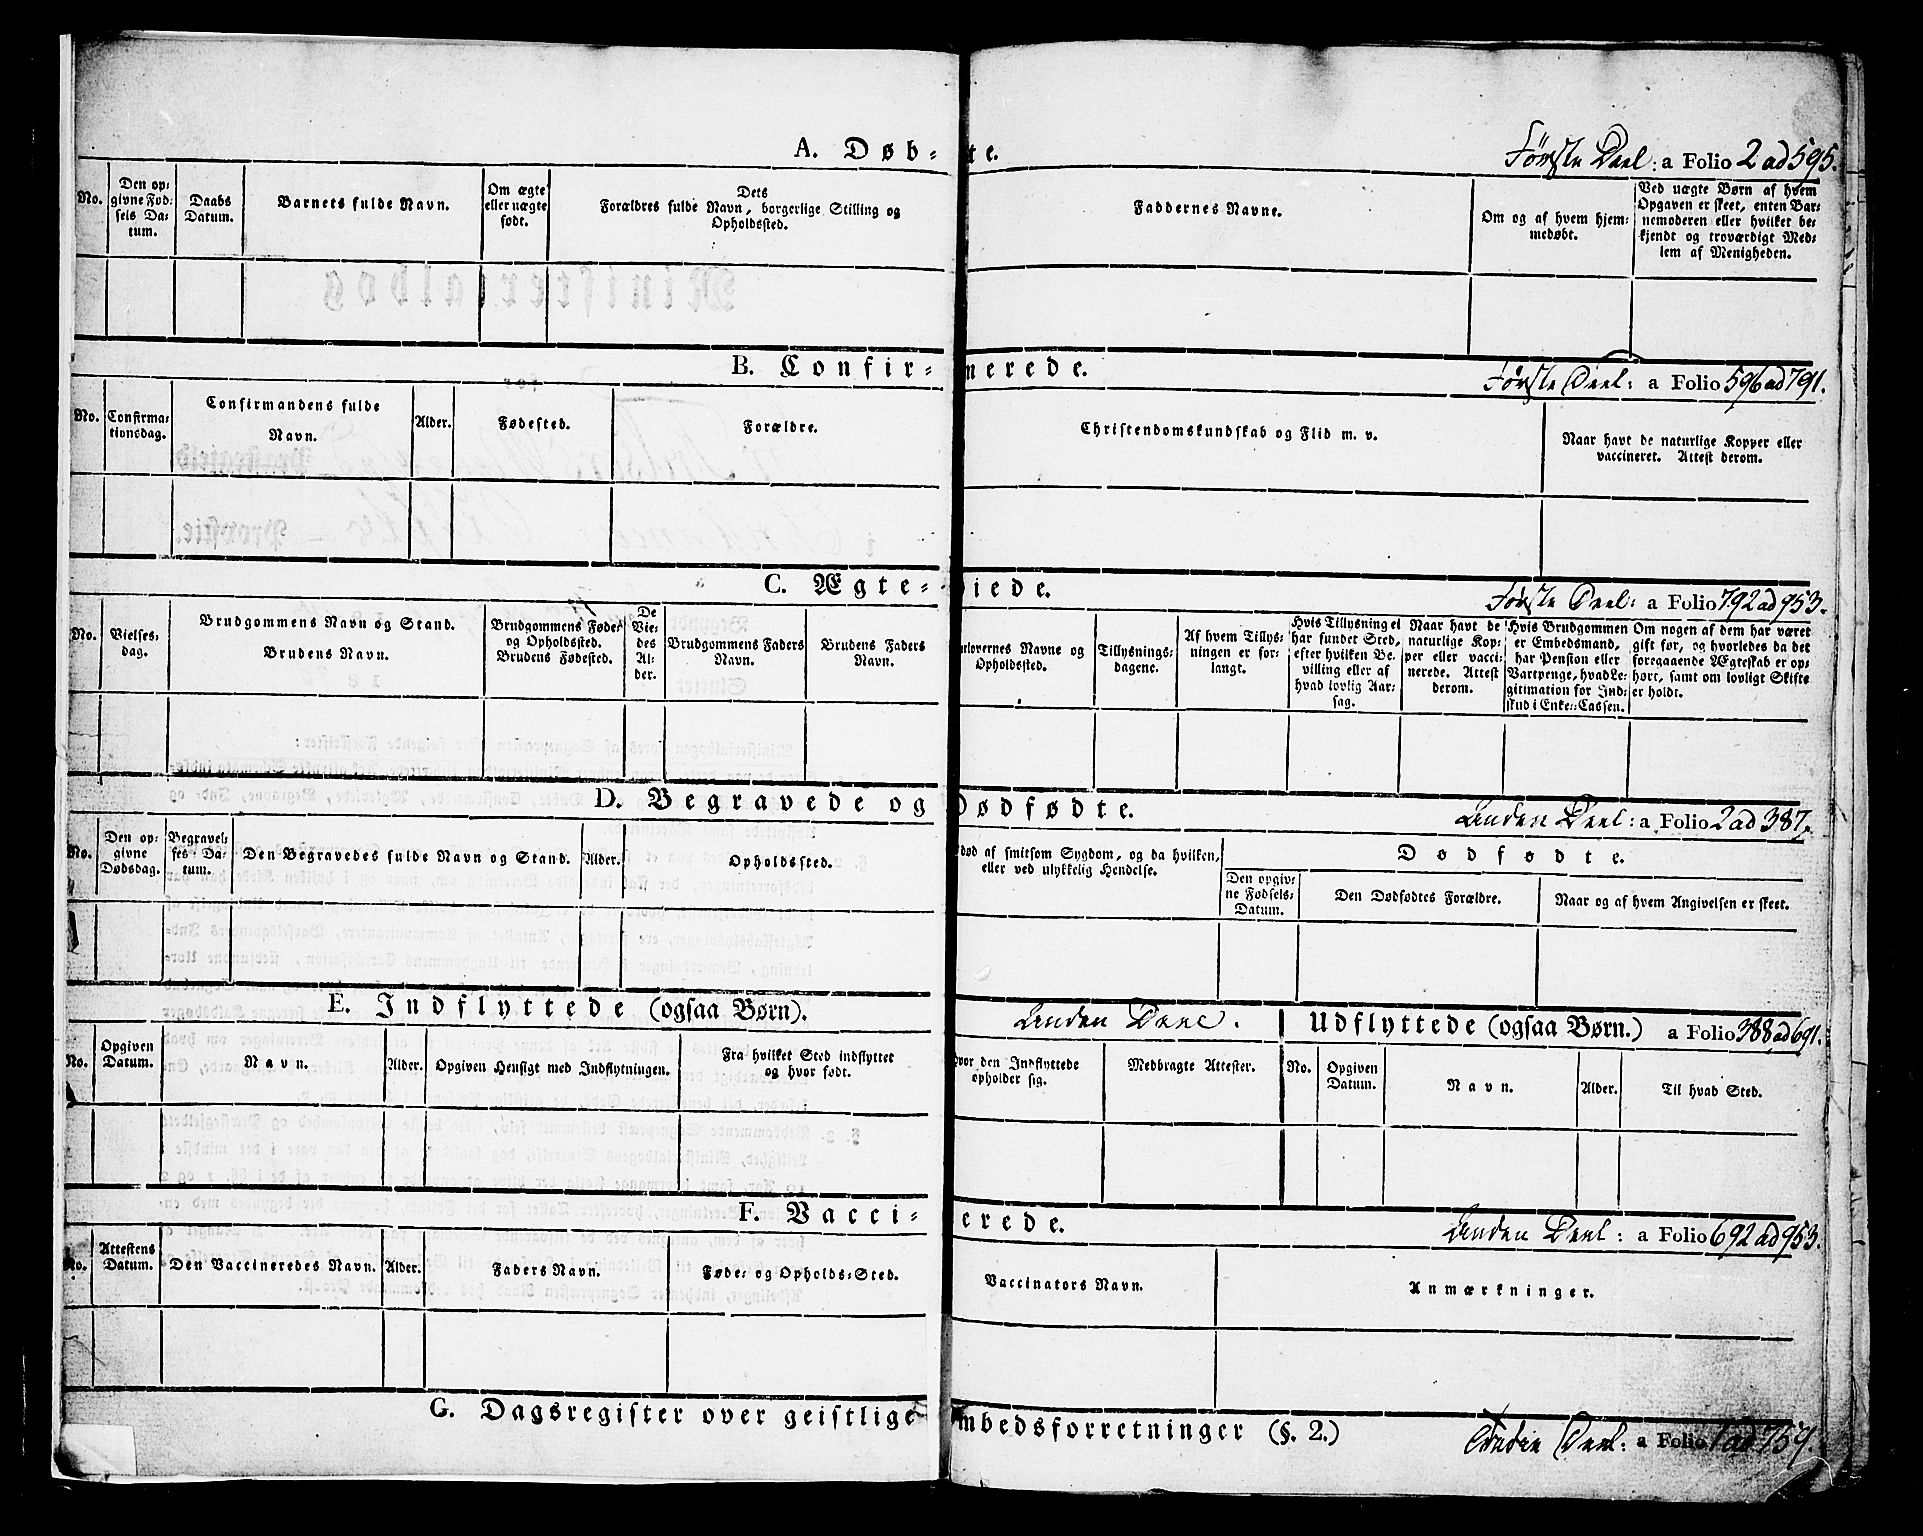 A. Døb- te. Første Deel: a Folio 2 ad 595.
No.
Den op-
givne Fød-
sels Da-
tum.
Daabs
Datum.
Barnets fulde Navn.
Om ægte
eller uægte
født.
Dets
Forældres fulde Navn, borgerlige Stilling og
Opholdssted.
Faddernes Navne.
Om og af hvem hjem-
medøbt.
Ved uægte Børn af hvem
Opgaven er skeet, enten Bar-
nemoderen eller hvilket be-
kjendt og troværdigt Med-
lem af Menigheden.
B. Confir- merede. Første Deel: a Folio 596 ad 791.
No.
Confirma-
tionsdag.
Confirmandens fulde
Navn.
Alder.
Fødested.
Forældre.
Christendomskundskab og Flid m. v.
Naar havt de naturlige Kopper eller
vaccineret. Attest derom.
C. Ægte- viede. Første Deel: a Folio 792 ad 953.
No.
Vielses-
dag.
Brudgommens Navn og Stand.
Brudens Navn.
Brudgommens Føde-
og Opholdssted.
Brudens Fødested.
De
Vie-
des
Al-
der.
Brudgommens Faders
Navn.
Brudens Faders
Navn.
orlovernes Navne og
Opholdssted.
Tillysnings-
dagene.
Af hvem Tillys-
ningen er for-
langt.
Hvis Tillysning ei
har fundet Sted,
efter hvilken Be-
villing eller af
hvad lovlig Aar-
sag.
Naar havt de
naturlige Kop-
per eller vacci-
nerede. Attest
derom.
Hvis Brudgommen
er Embedsmand,
har Pension eller
Vartpenge, hvad Le-
gitimation for Ind-
skud i Enke-Cassen.
Om nogen af dem har været
gift før, og hvorledes da det
foregaaende Ægteskab er op-
hørt, samt om lovligt Skifte
er holdt.
D. Begravede og Dødfødte. Anden Deel: a Folio 2 ad 387.
No.
Den op-
givne
Dødsdag.
Begravel-
ses-Da-
tum.
Den Begravedes fulde Navn og Stand.
Alder.
Opholdssted.
Død af smitsom Sygdom, og da hvilken,
eller ved ulykkelig Hendelse.
Dødfødte.
Den opgiv-
ne Fødsels-
Datum.
Den Dødfødtes Forældre.
Naar og af hvem Angivelsen er skeet.
E. Indflyttede (ogsaa Børn). Anden Deel. Udflyttede (ogsaa Børn.) a Folio 388 ad 691.
No.
Opgiven
Datum.
Navn.
Alder.
Opgiven Hensigt med Indflytningen.
Fra hvilket Sted indflyttet
og hvor født.
Hvor den Indflyttede
opholder sig.
Medbragte Attester.
No.
Opgiven
Datum.
Navn.
Alder.
Til hvad Sted.
F. Vacci- nerede. Anden Deel: a Folio 692 ad 953.
No.
Attestens
Datum.
Den Vaccineredes Navn.
Alder.
Faders Navn.
Føde- og Opholds-Sted.
Vaccinators Navn.
Anmærkninger.
G. Dagsregister over geistlige Embedsforretninger (§. 2.) Tredie Deel: a Folio 1 ad 759.